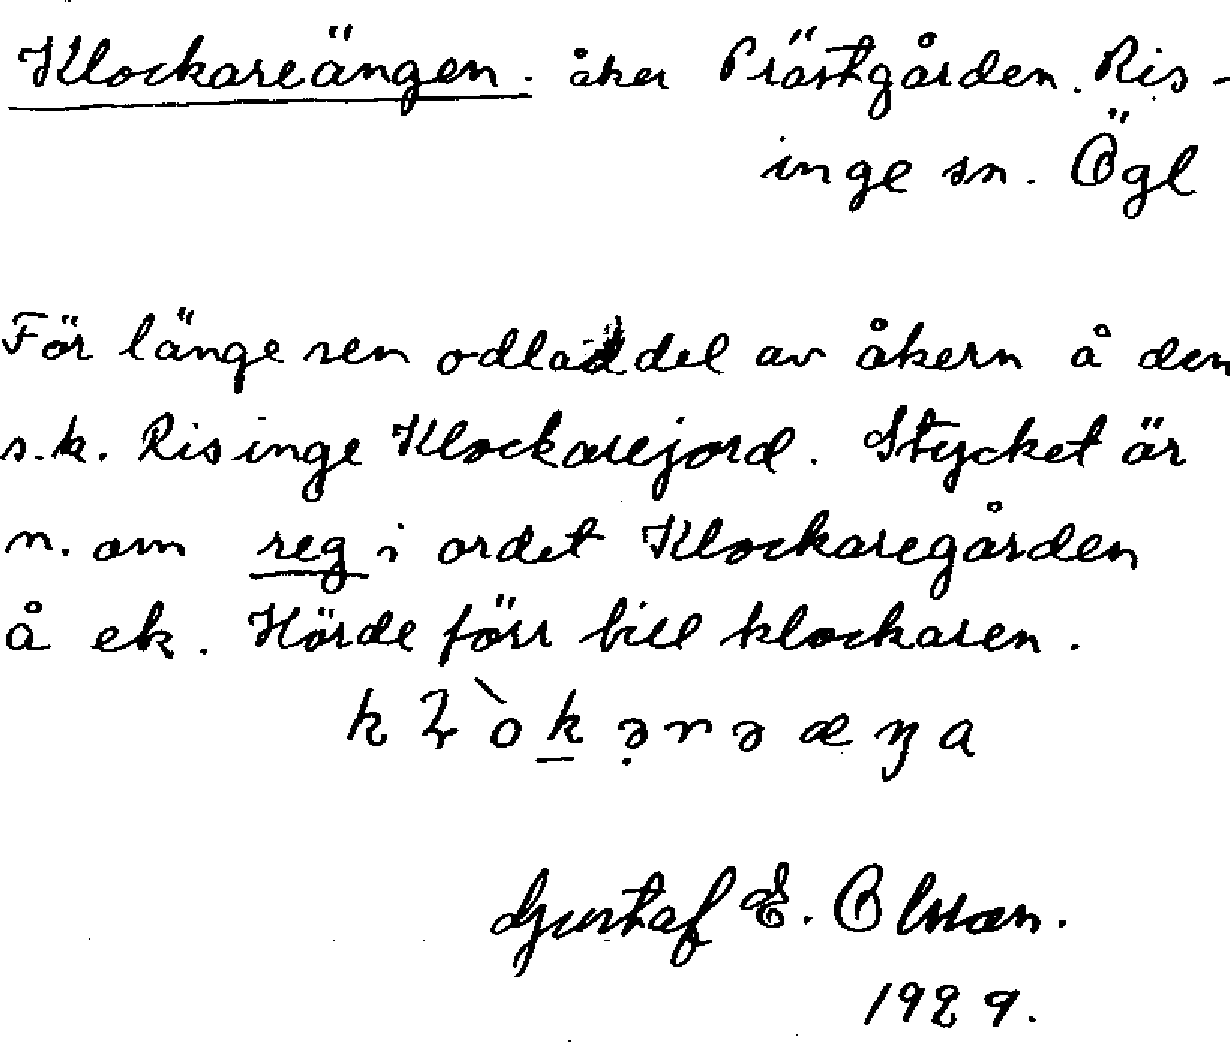 Klockareängen. åker Prästgården. Ris-
inge sn. Ögl
För länge sen odlad del av åkern å den
s.k. Risinge Klockarejord. Stycket är
n. om reg i ordet Klockaregården
å ek. Hörde förr till klockaren.
Gustaf E. Olsson.
1929.